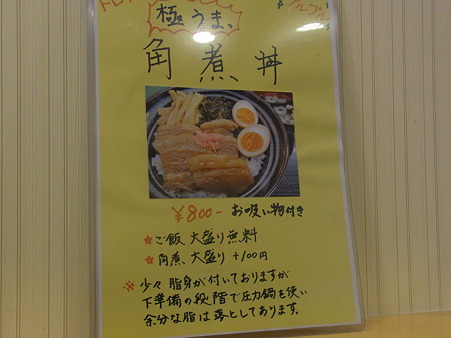 極うま、
プルプル
角煮丼
¥800- お吸い物付き
★ご飯 大盛り無料
★角煮 大盛り +100円
※少々 脂身が付いておりますが
下準備の段階で圧力鍋を使い
余分な脂は落としております。